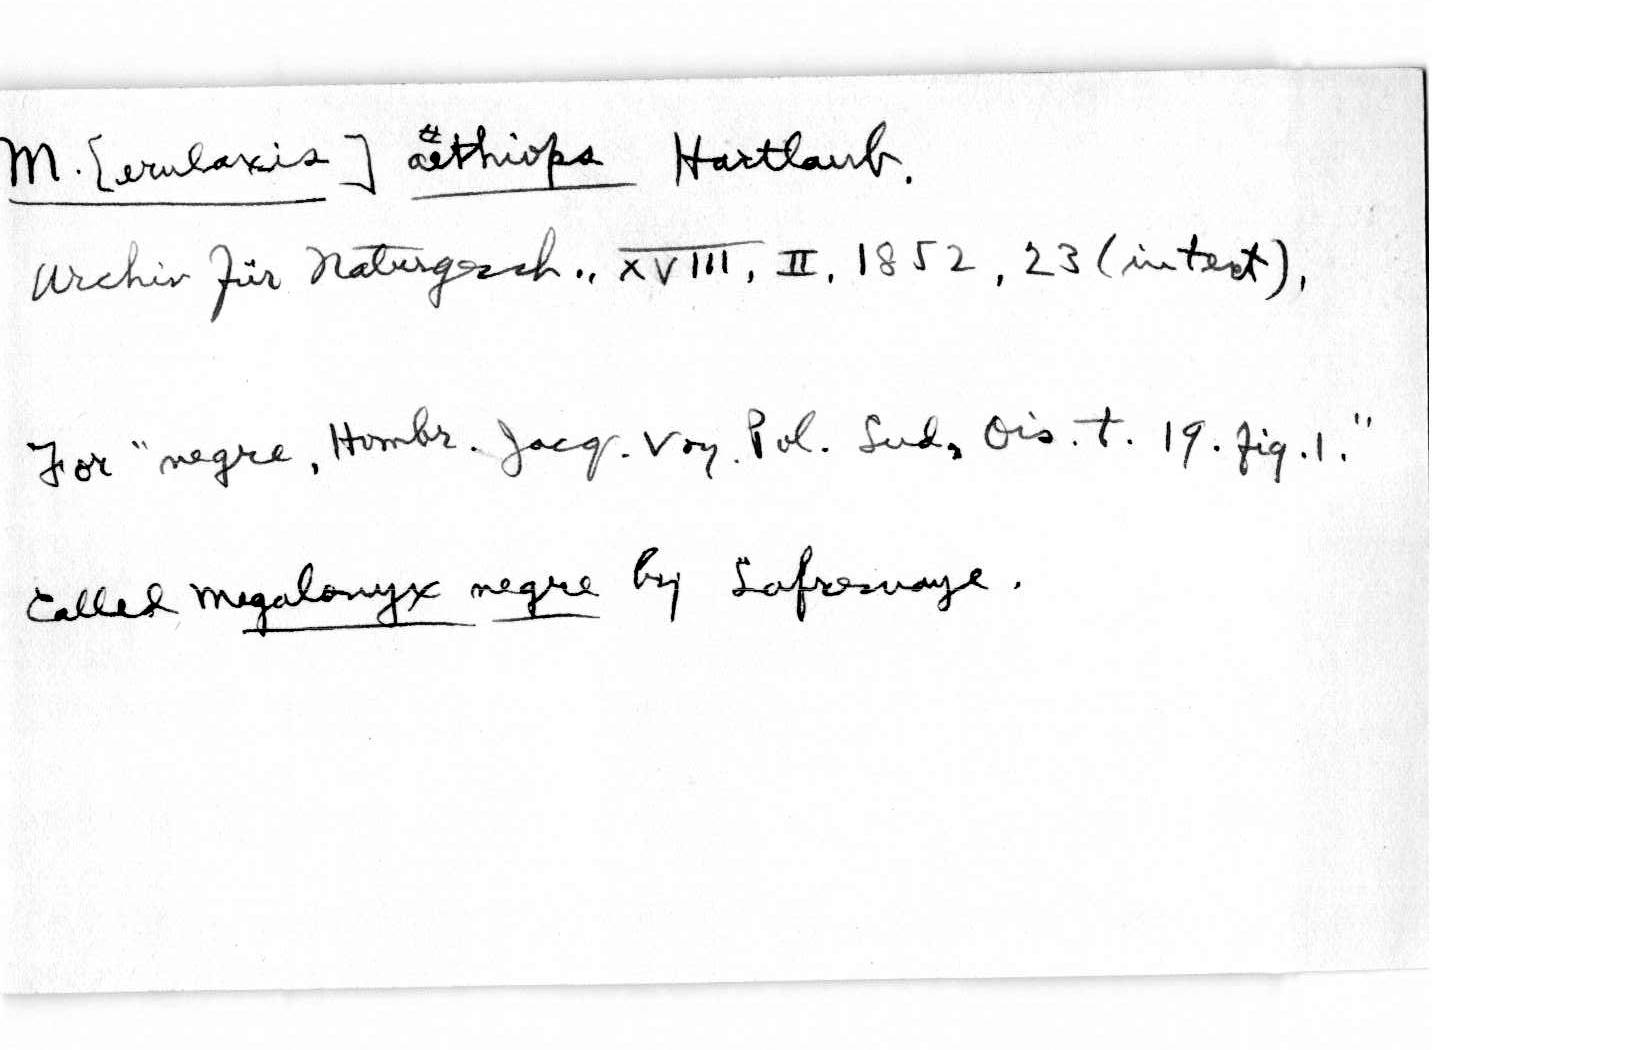 M.[erulaxis] aethiops Hartlaub.
Archiv für Naturgesch., XVIII, II, 1852, 23 (in text),
For "negre, Hombr. Jacq. Voy. Pol. Sud, Ois. t. 19. fig. 1."
Called Megalonyx negre by Lafresnaye.